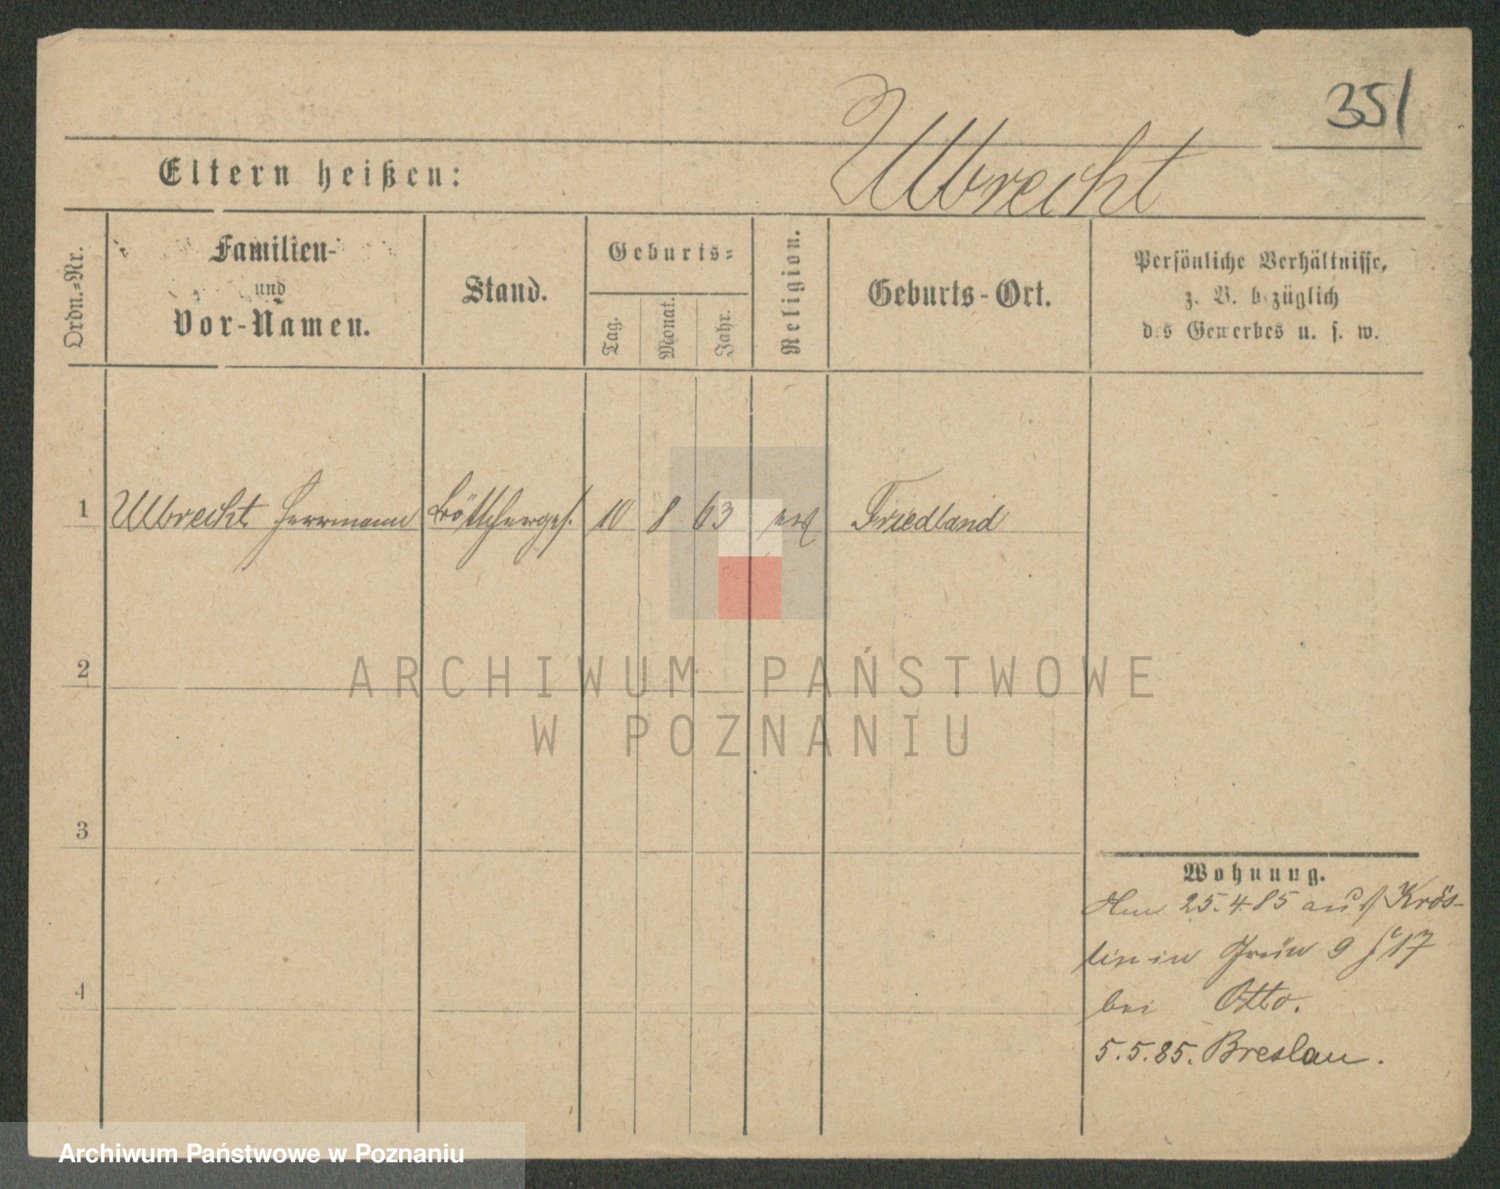 351
Ulbrecht
Eltern heißen:
Ordn.-Nr.
Familien-
und
Vor-Namen.
Stand.
Geburts-
Tag.
Monat.
Jahr.
Religion.
Geburts-Ort.
Persönliche Verhältnisse,
z. B. bezüglich
des Gewerbes u. s. w.
1 Ulbrecht Herrmann Böttcherges. 10 8 63 ev Friedland
2
3
4
Wohnung.
25.4.85 aus Krös-
in Grün 9 17
bei Otto.
5.5.85. Breslau.
ARCHIWUM PAŃSTWOWE
W POZNANIU
Archiwum Państwowe w Poznaniu